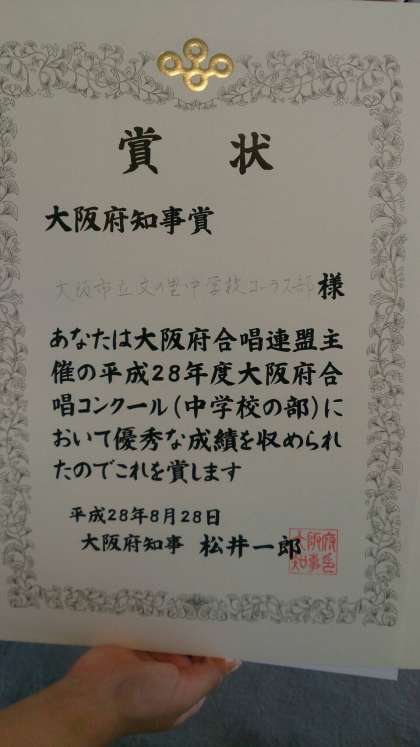 賞状
大阪府知事賞
大阪市立文の里中学校コーラス部様
あなたは大阪府合唱連盟主
催の平成28年度大阪府合
唱コンクール(中学校の部)に
おいて優秀な成績を収められ
たのでこれを賞します
平成28年8月28日
大阪府知事 松井一郎
大阪府
知事